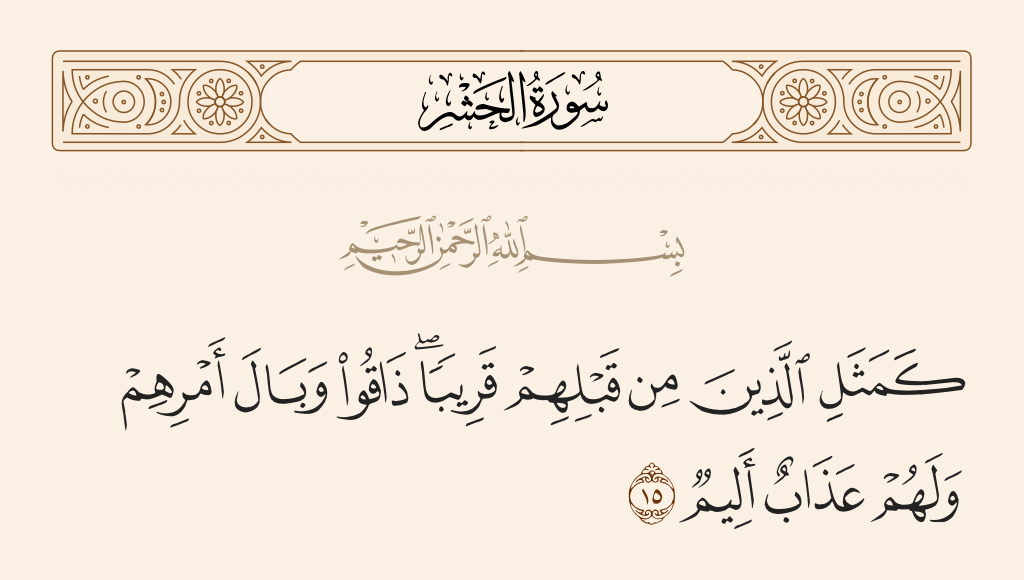 سُورَةُ الحَشْرِ
بِسْمِ ٱللَّهِ ٱلرَّحْمَٰنِ ٱلرَّحِيمِ
كَمَثَلِ ٱلَّذِينَ مِن قَبْلِهِمْ قَرِيبًاۖ ذَاقُوا۟ وَبَالَ أَمْرِهِمْ
وَلَهُمْ عَذَابٌ أَلِيمٌ ١٥